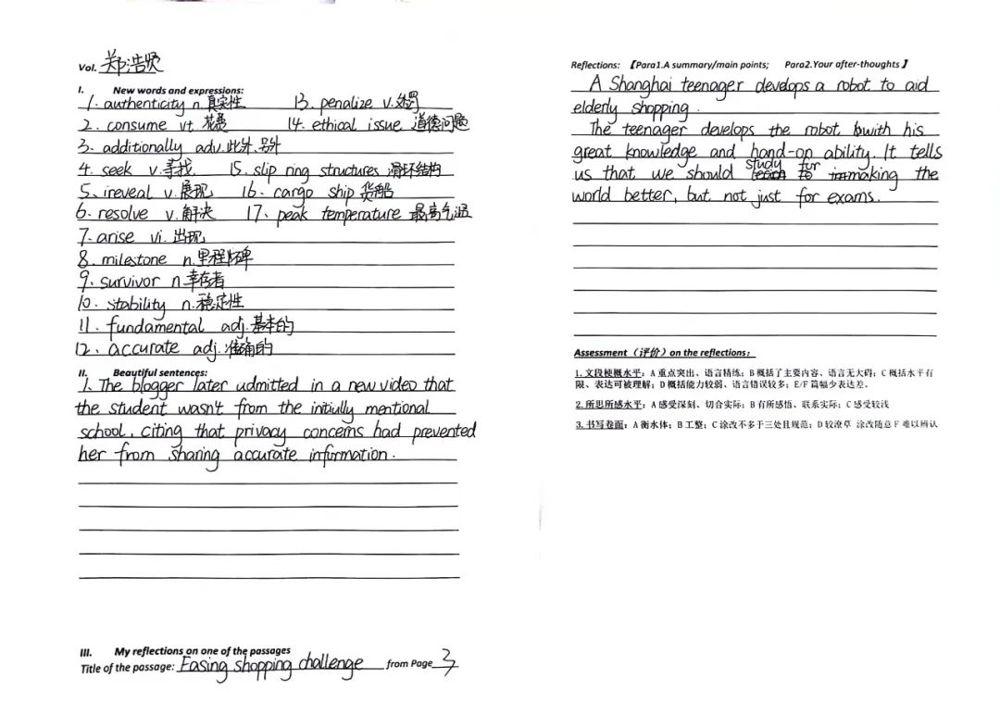 Vol. 郑浩贤
I. New words and expressions:
1. authenticity n.真实性 13. penalize v.处罚
2. consume vt. 花费 14. ethical issue 道德问题
3. additionally adv.此外,另外
4. seek v.寻找 15. slip ring structures 滑环结构
5. ireveal v.展现 16. cargo ship 货船
6. resolve v.解决 17. peak temperature 最高气温
7. arise vi. 出现
8. milestone n.里程碑
9. survivor n.幸存者
10. stability n.稳定性
11. fundamental adj.基本的
12. accurate adj.准确的
II. Beautiful sentences:
1. The blogger later udmitted in a new video that
the student wasn't from the initiully mentional
school, citing that privacy concerns had prevented
her from sharing accurate information.
III. My reflections on one of the passages
Title of the passage: Easing shopping challenge from Page 3
Reflections: 【Para1.A summary/main points; Para2.Your after-thoughts 】
A Shanghai teenager develops a robot to aid
elderly shopping.
The teenager develops the robot with his
great knowledge and hand-on ability. It tells
us that we should study for making the
world better, but not just for exams.
Assessment（评价）on the reflections:
1. 文段梗概水平：A 重点突出、语言精练；B 概括了主要内容、语言无大碍；C 概括水平有
限、表达可被理解；D 概括能力较弱、语言错误较多；E/F 篇幅少表达差。
2. 所思所感水平：A 感受深刻、切合实际；B 有所感悟、联系实际；C 感受较浅
3. 书写卷面：A 衡水体；B 工整；C 涂改不多于三处且规范；D 较潦草 涂改随意 F 难以辨认